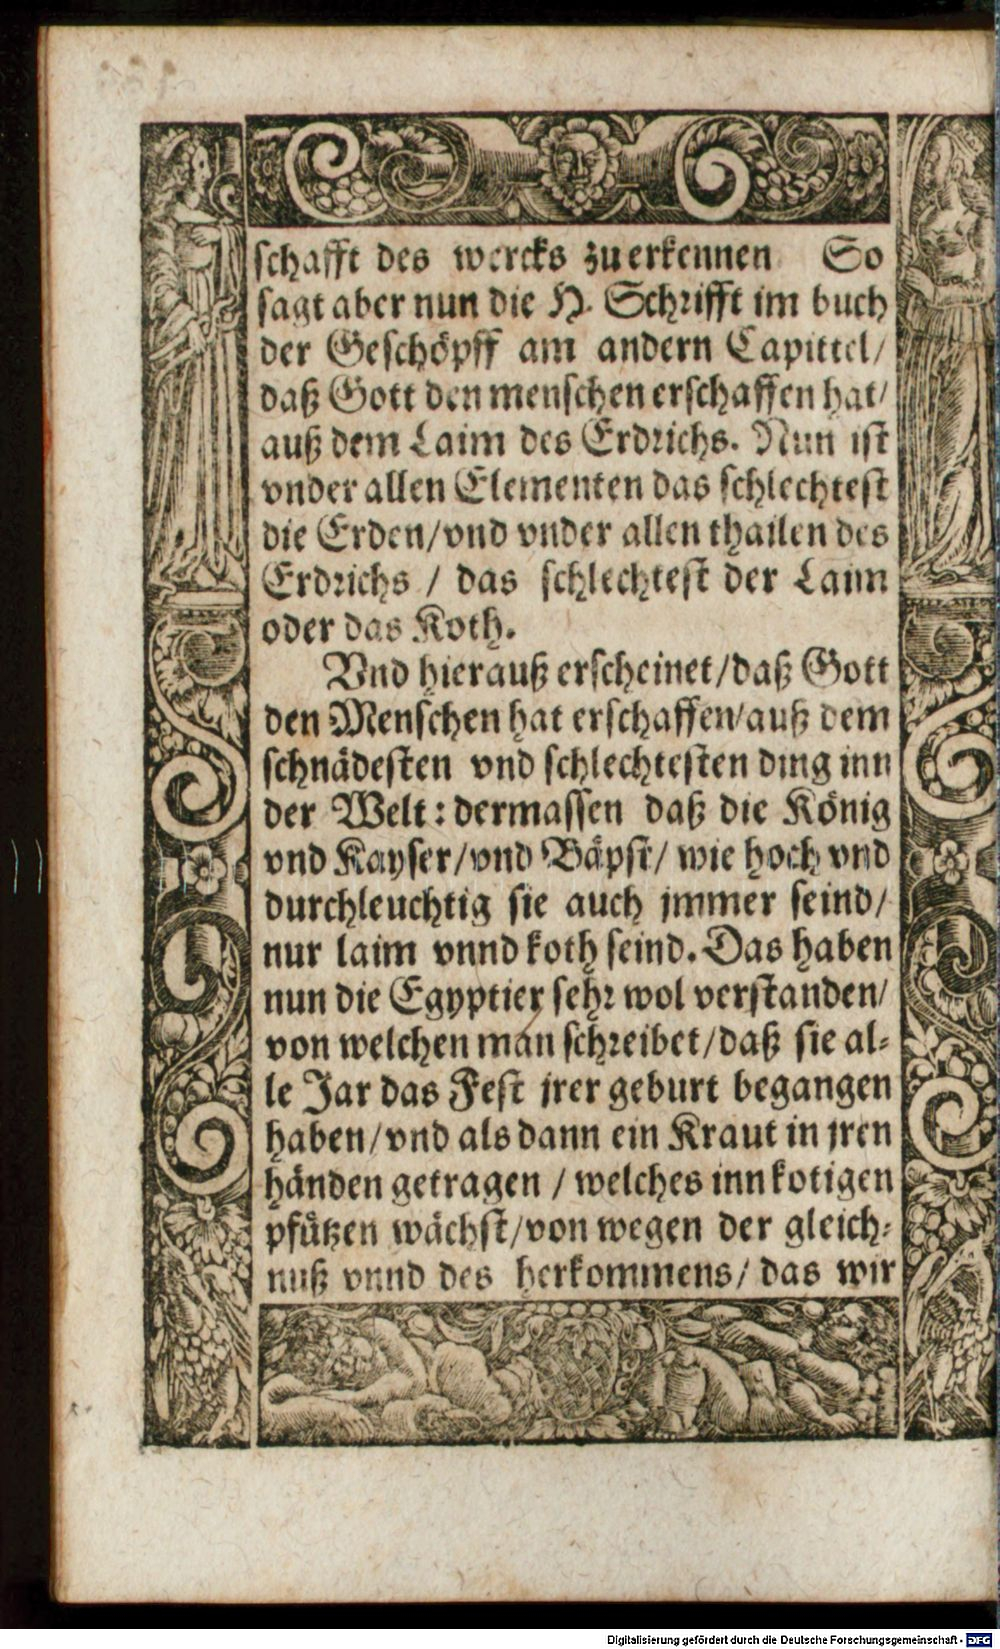 schafft des wercks zu erkennen So
sagt aber nun die H. Schrifft im buch
der Geschöpff am andern Capittel/
daß Gott den menschen erschaffen hat/
auß dem Laim des Erdrichs. Nun ist
vnder allen Elementen das schlechtest
die Erden/vnd vnder allen thailen des
Erdrichs / das schlechtest der Laim
oder das Koth.
Vnd hierauß erscheinet/daß Gott
den Menschen hat erschaffen/auß dem
schnädesten vnd schlechtesten ding inn
der Welt: dermassen daß die König
vnd Kayser/vnd Bäpst/ wie hoch vnd
durchleuchtig sie auch jmmer seind/
nur laim vnnd koth seind. Das haben
nun die Egyptier sehr wol verstanden/
von welchen man schreibet/daß sie al-
le Jar das Fest jrer geburt begangen
haben/vnd als dann ein Kraut in jren
händen getragen / welches inn kotigen
pfützen wächst/von wegen der gleich-
nuß vnnd des herkommens/ das wir
Digitalisierung gefördert durch die Deutsche Forschungsgemeinschaft - DFG